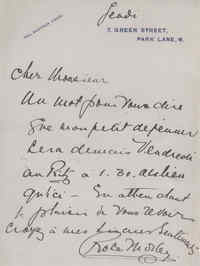 Jeudi
7, GREEN STREET,
PARK LANE, W.
Cher Monsieur
Un mot pour vous dire
que mon petit dejeuner
sera demain Vendredi
au Ritz a 1.30. au lieu
qu'ici - En attendant
le plaisir de vous revoir
croyez a mes Sentiments